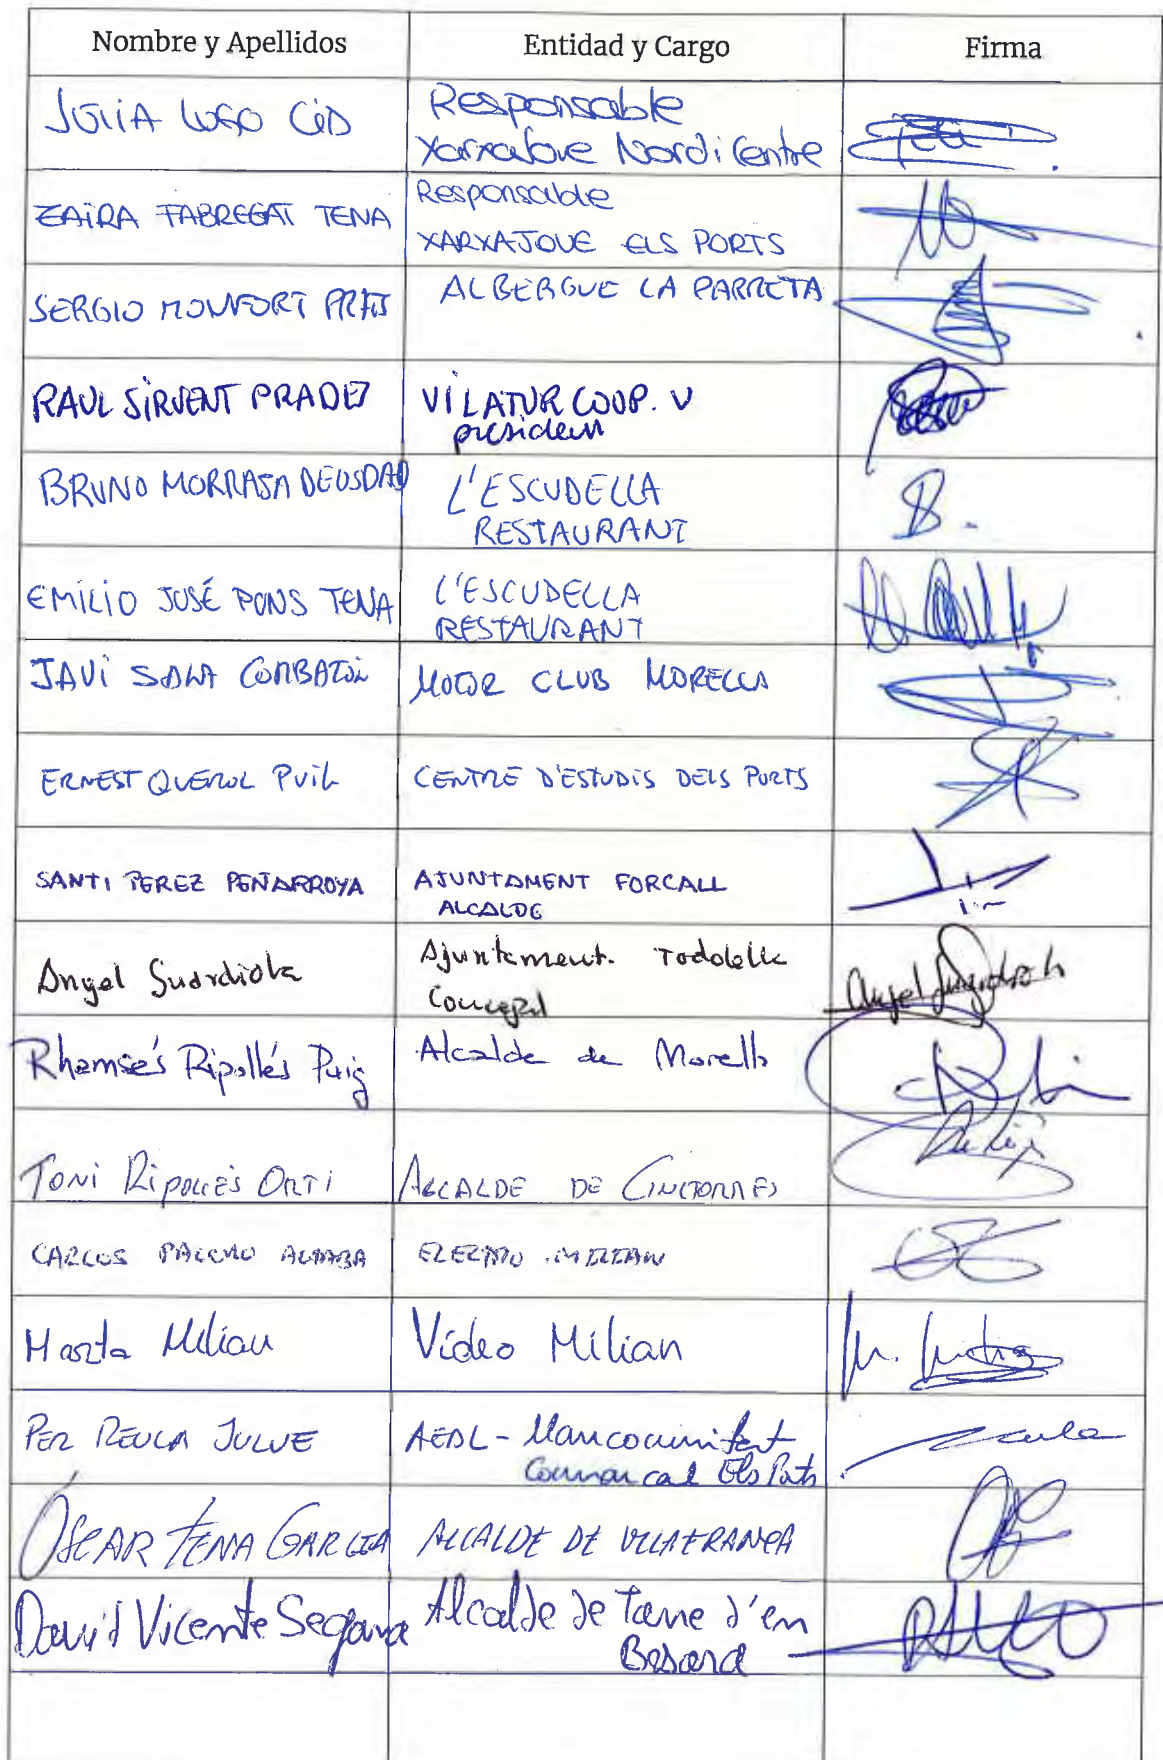 Nombre y Apellidos
Entidad y Cargo
Firma
JÚLIA LUGO CID
Responsable
Xarxa Jove Nord i Centre
ZAIRA FABREGAT TENA
Responsable
XARXAJOVE ELS PORTS
SERGIO MONFORT PRATS
ALBERGUE LA PARRETA
RAUL SIRVENT PRADES
VILATUR COOP. V
president
BRUNO MORRAJA DEUSDAD
L'ESCUDELLA
RESTAURANT
EMILIO JOSÉ PONS TENA
L'ESCUDELLA
RESTAURANT
JAVI SALA
MOTOR CLUB MORELLA
ERNEST QUEROL PUIG
CENTRE D'ESTUDIS DELS PORTS
SANTI PEREZ PEÑARROYA
AJUNTAMENT FORCALL
ALCALDE
Angel Guardiola
Ajuntament. Todolella
Concejal
Angel Guardiola
Rhamsés Ripollés Puig
Alcalde de Morella
TONI RIPOLLÉS ORTI
ALCALDE DE CINCTORRES
CARLOS
MILIAN
Marta Milian
Vídeo Milian
PER REULA JULVE
AEDL - Mancomunitat
Comarcal Els Ports
ÓSCAR TENA GARCIA
ALCALDE DE VILAFRANCA
David Vicente Segarra
Alcalde de Torre d'en
Besora